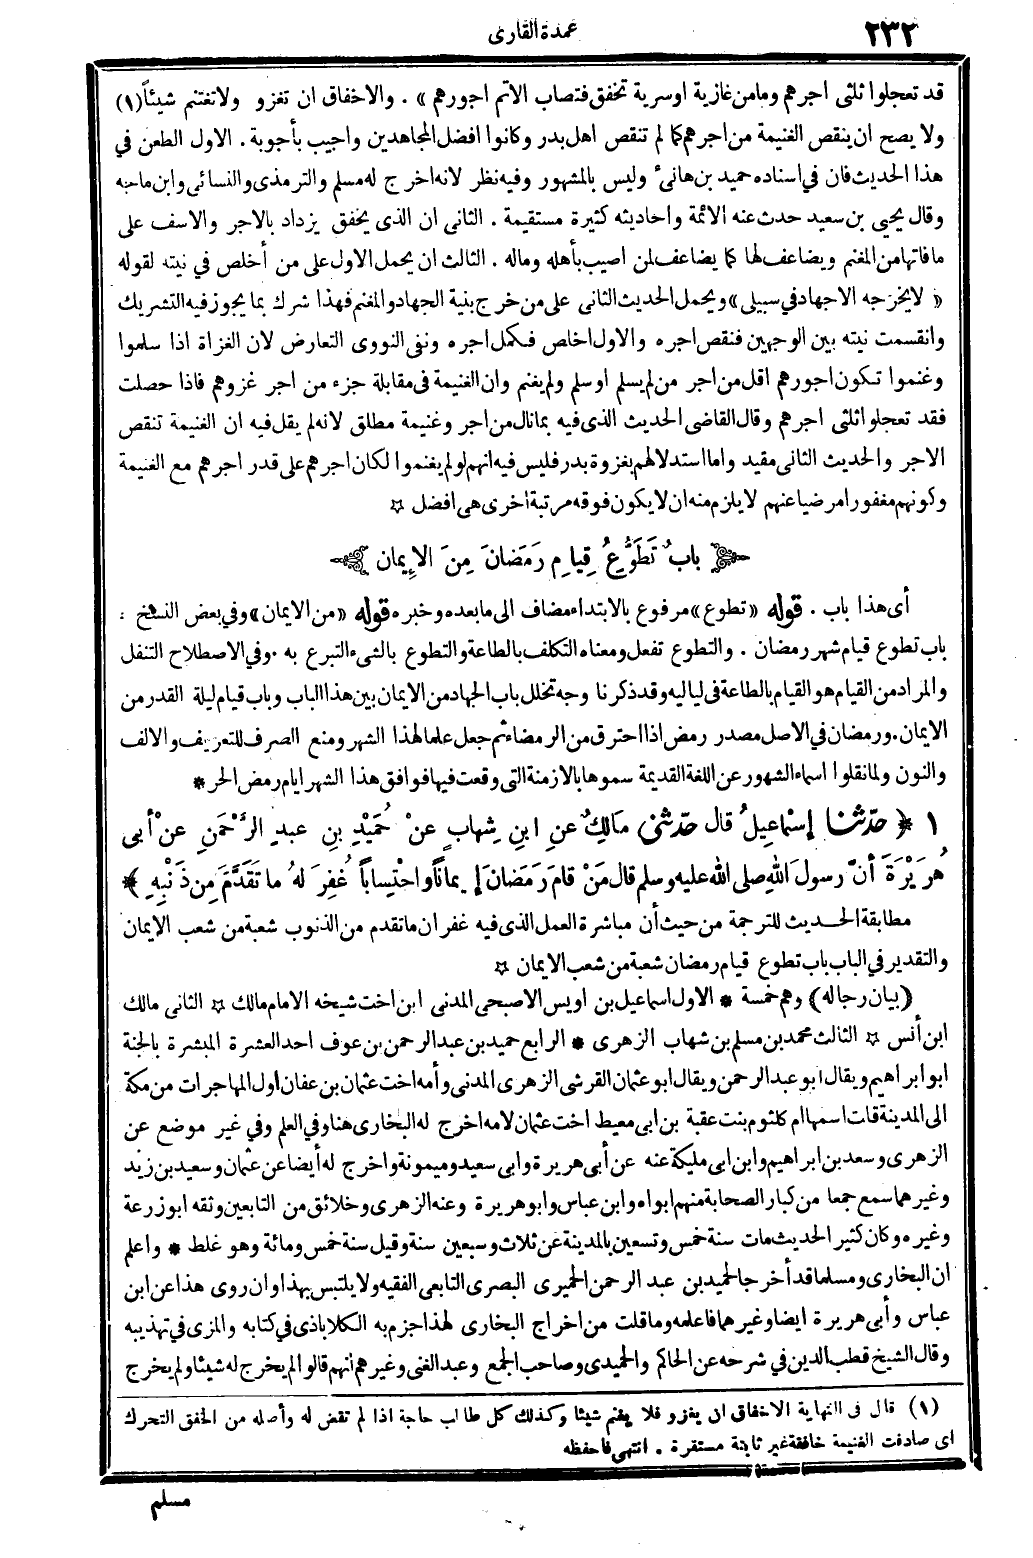 ٢٣٢
عمدة القارى
قد تعجلوا ثلثى اجرهم وما من غازية او سرية تخفق فتصاب الا تم اجورهم » . والاخفاق ان تغزو ولا تغتنم شيئاً (١)
ولا يصح ان ينقص الغنيمة من اجرهم كما لم تنقص اهل بدر وكانوا افضل المجاهدين واجيب بأجوبة . الاول الطعن في
هذا الحديث فان في اسناده حميد بن هانىء وليس بالمشهور وفيه نظر لانه اخرج له مسلم والترمذى والنسائى وابن ماجه
وقال يحيى بن سعيد حدث عنه الائمة واحاديثه كثيرة مستقيمة . الثانى ان الذى يخفق يزداد بالاجر والاسف على
ما فاتها من المغنم ويضاعف لها كما يضاعف لمن اصيب بأهله وماله . الثالث ان يحمل الاول على من أخلص في نيته لقوله
« لايخرجه الا جهاد في سبيلى » ويحمل الحديث الثانى على من خرج بنية الجهاد والمغنم فهذا شرك بما يجوز فيه التشريك
وانقسمت نيته بين الوجهين فنقص اجره والاول اخلص فكمل اجره ونفى النووى التعارض لان الغزاة اذا سلموا
وغنموا تكون اجورهم اقل من اجر من لم يسلم او سلم ولم يغنم وان الغنيمة فى مقابلة جزء من اجر غزوهم فاذا حصلت
فقد تعجلوا ثلثى اجرهم وقال القاضى الحديث الذى فيه بما نال من اجر وغنيمة مطلق لانه لم يقل فيه ان الغنيمة تنقص
الاجر والحديث الثانى مقيد واما استدلالهم بغزوة بدر فليس فيه انهم لو لم يغنموا لكان اجرهم على قدر اجرهم مع الغنيمة
وكونهم مغفورا مرضيا عنهم لا يلزم منه ان لا يكون فوقه مرتبة اخرى هى افضل ☆
بابُ تَطَوُّعُ قِيامِ رَمَضَانَ مِنَ الإِيمَان
أى هذا باب . قوله « تطوع » مرفوع بالابتداء مضاف الى ما بعده وخبره قوله « من الايمان » وفي بعض النسخ :
باب تطوع قيام شهر رمضان . والتطوع تفعل ومعناه التكلف بالطاعة والتطوع بالشىء التبرع به . وفي الاصطلاح التنفل
والمراد من القيام هو القيام بالطاعة فى لياليه وقد ذكرنا وجه تخلل باب الجهاد من الايمان بين هذا الباب وباب قيام ليلة القدر من
الايمان . ورمضان في الاصل مصدر رمض اذا احترق من الرمضاء ثم جعل علما لهذا الشهر ومنع الصرف للتعريف والالف
والنون ولما نقلوا اسماء الشهور عن اللغة القديمة سموها بالازمنة التى وقعت فيها فوافق هذا الشهر ايام رمض الحر *
١ * ﴿ حدّثنا إِسْماعِيلُ قال حدّثنى مالِكٌ عنِ ابنِ شِهابٍ عنْ حُمَيْدِ بنِ عبدِ الرَّحْمَنِ عنْ أبى
هُرَيْرَةَ أنَّ رسولَ اللهِ صلى الله عليه وسلم قال مَنْ قامَ رَمَضَانَ إيماناً واحْتِساباً غُفِرَ لهُ ما تَقَدَّمَ مِن ذَنْبِهِ ﴾ *
مطابقة الحديث للترجمة من حيث أن مباشرة العمل الذى فيه غفران ما تقدم من الذنوب شعبة من شعب الايمان
والتقدير في الباب باب تطوع قيام رمضان شعبة من شعب الايمان ☆
(بيان رجاله) وهم خمسة * الاول اسماعيل بن اويس الاصبحى المدنى ابن اخت شيخه الامام مالك ☆ الثانى مالك
ابن أنس ☆ الثالث محمد بن مسلم بن شهاب الزهرى * الرابع حميد بن عبد الرحمن بن عوف احد العشرة المبشرة بالجنة
ابو ابراهيم ويقال ابو عبد الرحمن ويقال ابو عثمان القرشى الزهرى المدنى وأمه اخت عثمان بن عفان اول المهاجرات من مكة
الى المدينة قلت اسمها ام كلثوم بنت عقبة بن ابى معيط اخت عثمان لامه اخرج له البخارى هنا وفي العلم وفي غير موضع عن
الزهرى وسعد بن ابراهيم وابن ابى مليكة عنه عن أبى هريرة وابى سعيد وميمونة واخرج له أيضا عن عثمان وسعيد بن زيد
وغيرهما سمع جمعا من كبار الصحابة منهم ابواه وابن عباس وابو هريرة وعنه الزهرى وخلائق من التابعين وثقه ابو زرعة
وغيره وكان كثير الحديث مات سنة خمس وتسعين بالمدينة عن ثلاث وسبعين سنة وقيل سنة خمس ومائة وهو غلط * واعلم
ان البخارى ومسلما قد أخرجا لحميد بن عبد الرحمن الحميرى البصرى التابعى الفقيه ولا يلتبس بهذا وان روى هذا عن ابن
عباس وأبى هريرة ايضا وغيرهما فاعلمه وما قلت من اخراج البخارى لهذا جزم به الكلاباذى في كتابه والمزى في تهذيبه
وقال الشيخ قطب الدين في شرحه عن الحاكم والحميدى وصاحب الجمع وعبد الغنى وغيرهم انهم قالوا لم يخرج له شيئا ولم يخرج
(١) قال فى النهاية الاخفاق ان يغزو فلا يغنم شيئا وكذلك كل طالب حاجة اذا لم تقض له وأصله من الخفق التحرك
اى صادفت الغنيمة خافقة غير ثابتة مستقرة . انتهى فاحفظه
مسلم